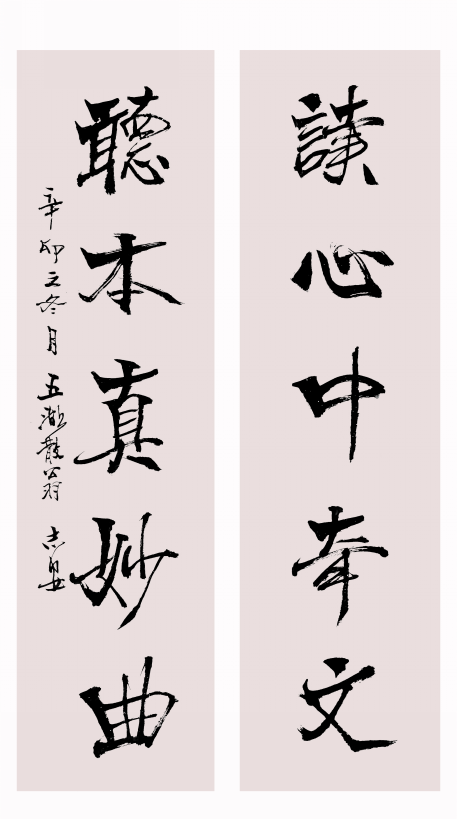 讀心中奇文
聽本真妙曲
辛卯之冬月 五湖散翁 志